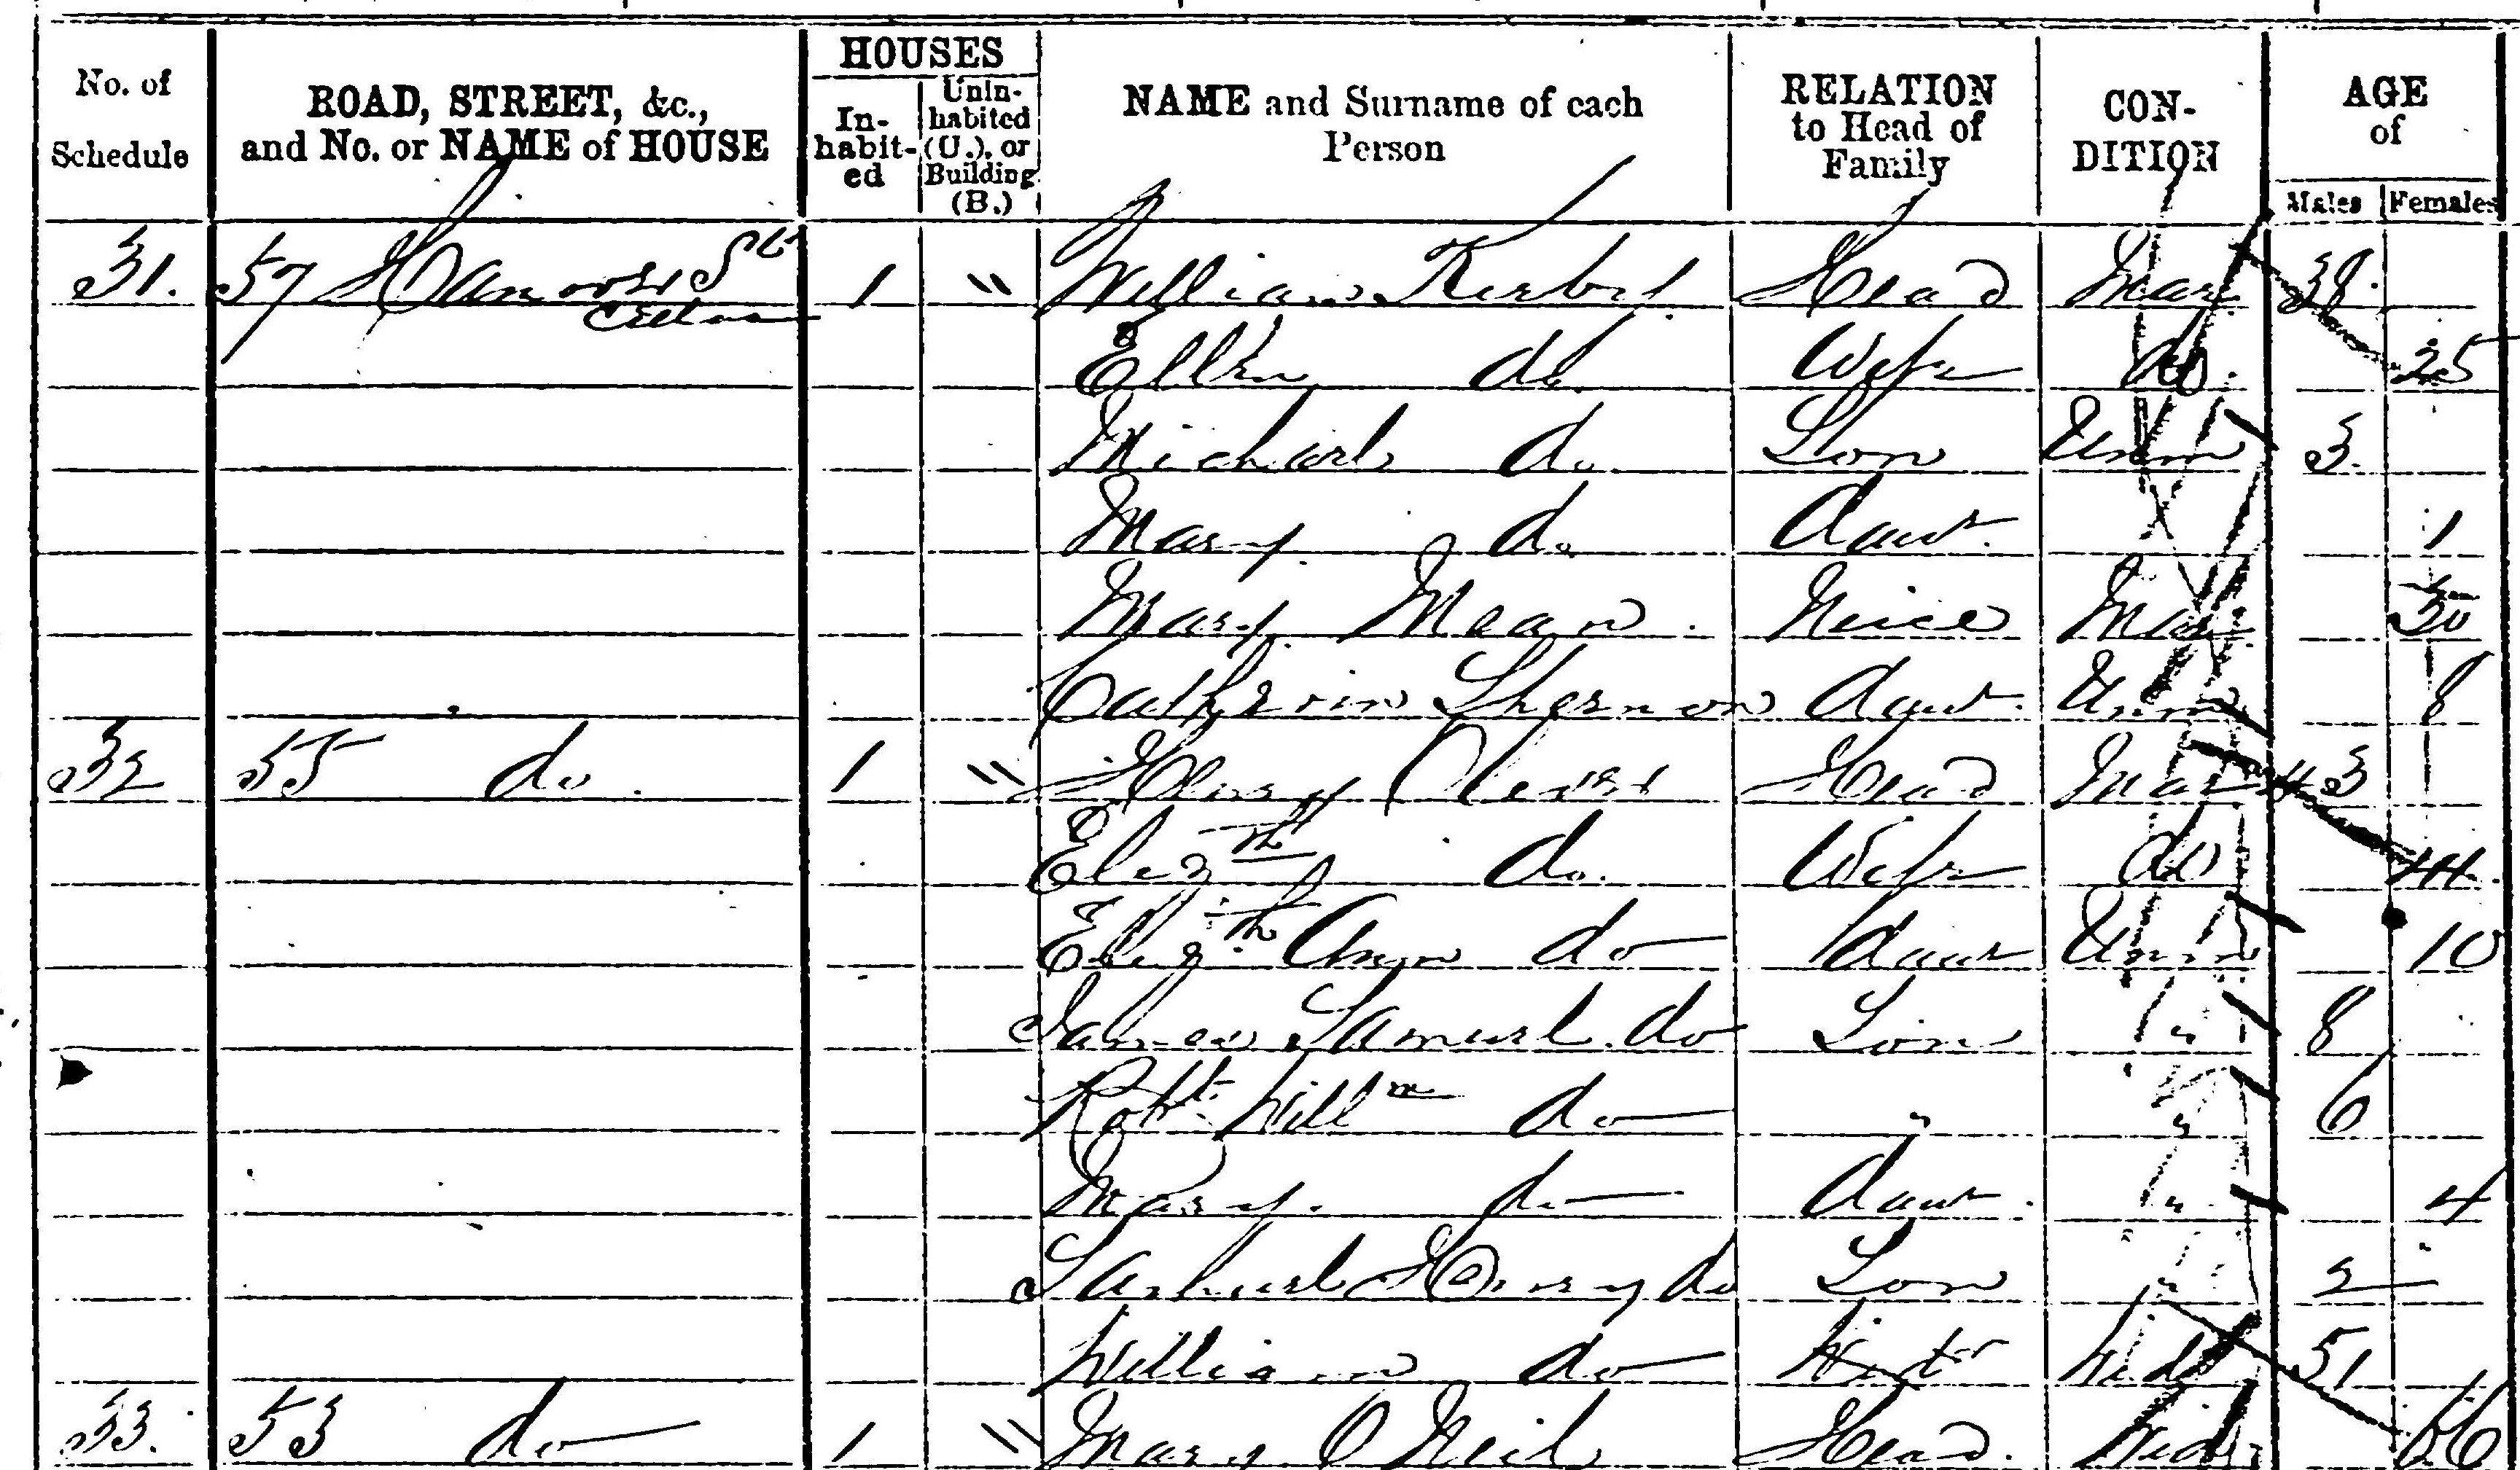 No. of Schedule | ROAD, STREET, &c., and No. or NAME of HOUSE | HOUSES In-habit-ed | Unin-habited (U.), or Building (B.) | NAME and Surname of each Person | RELATION to Head of Family | CON-DITION | AGE of Males | Females
31. 57 Hanover St 1 " William Kirby Head Mar 38
Ellen do Wife do 25
Michael do Son Unm 3
Mary do Daur 1
Mary Mean Neice Mar 30
Catherin Shernon Daur Unm 8
32 55 do 1 " Henry Head Mar 43
Elizth do Wife do 44
Elizth Ann do daur Unm 10
James Samuel do Son " 8
Robt Willm do " " 6
Mary do Daur " 4
Samuel Henry do Son " 2
William do Widr 51
33. 53 do 1 " Mary O Neil Head Widr 66